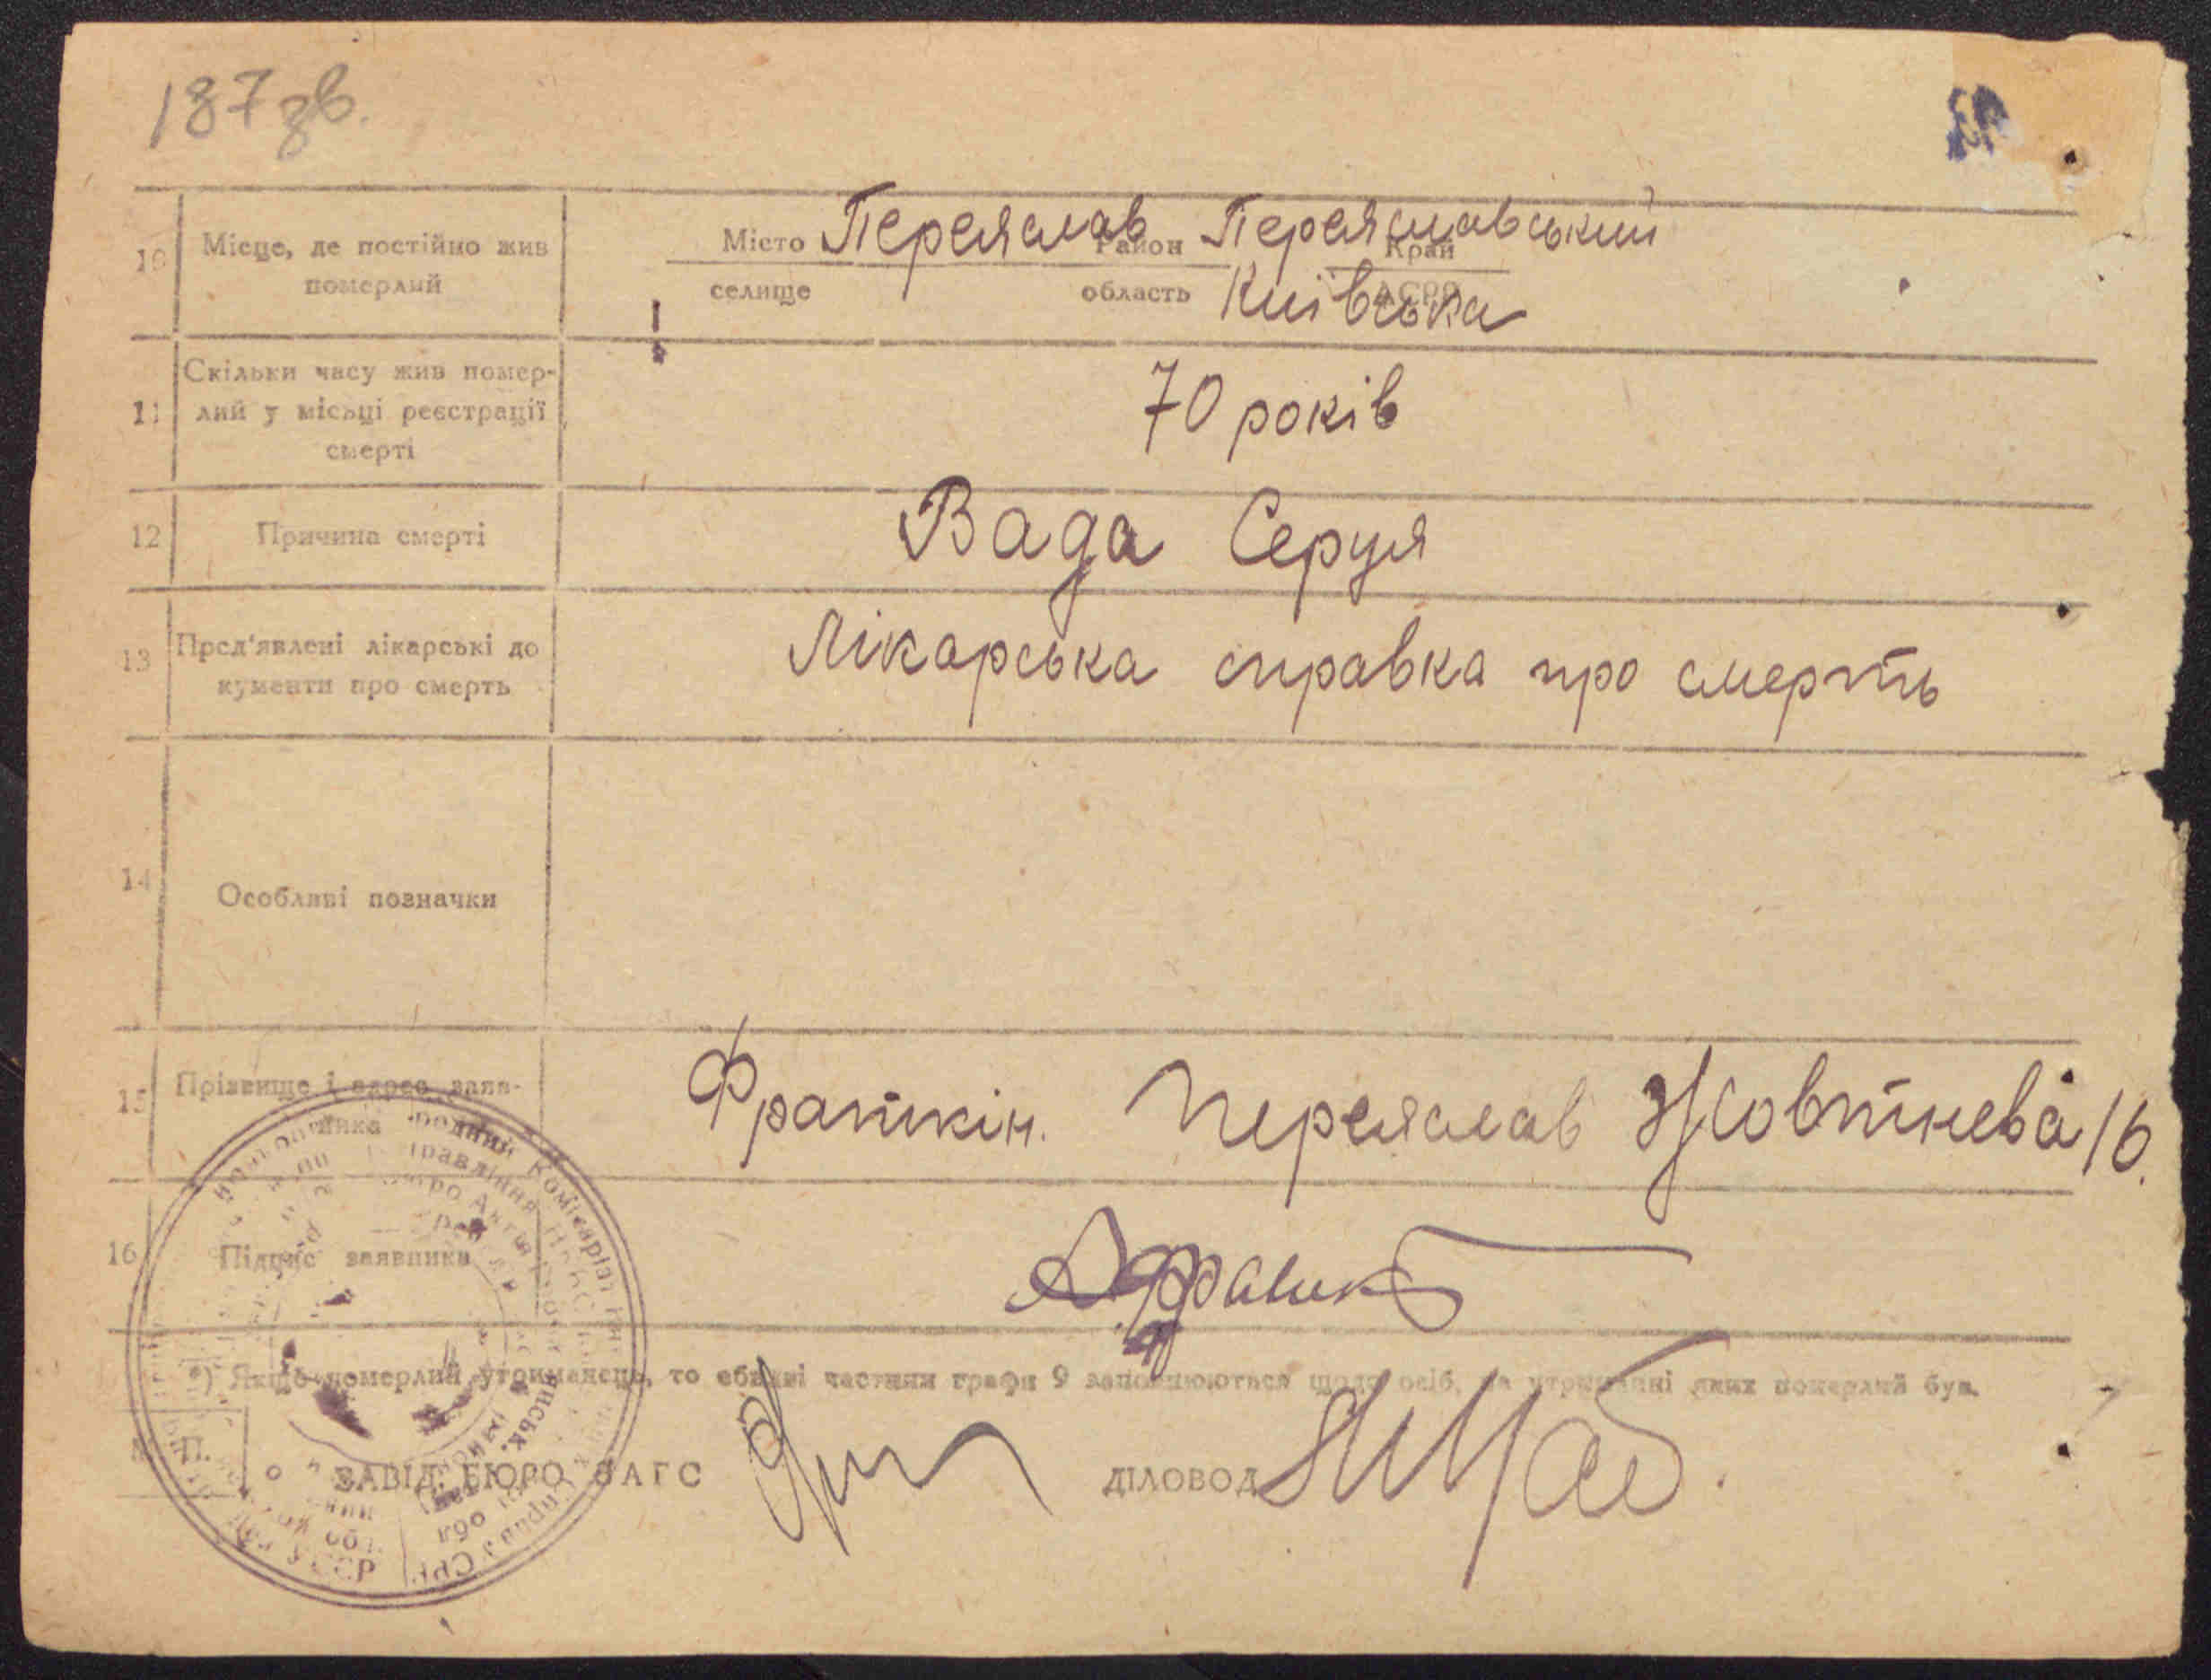 187 зв.
10 Місце, де постійно жив померлий
Місто Переяслав Район Переяславський Край
селище область Київська АСРР
11 Скільки часу жив помер-
лий у місьці реєстрації
смерті
70 років
12 Причина смерті Вада Серця
13 Пред'явлені лікарські до
кументи про смерть
Лікарська справка про смерть
14 Особливі позначки
15 Прізвище і адрес заяв-
ника
Фраткін. Переяслав Жовтнева 16.
16 Підпис заявника
*) Якщо померлий утриманець, то обидві частини графи 9 заповнюються щодо осіб, на утриманні яких померлий був.
М. П.
ЗАВІД. БЮРО ЗАГС ДІЛОВОД